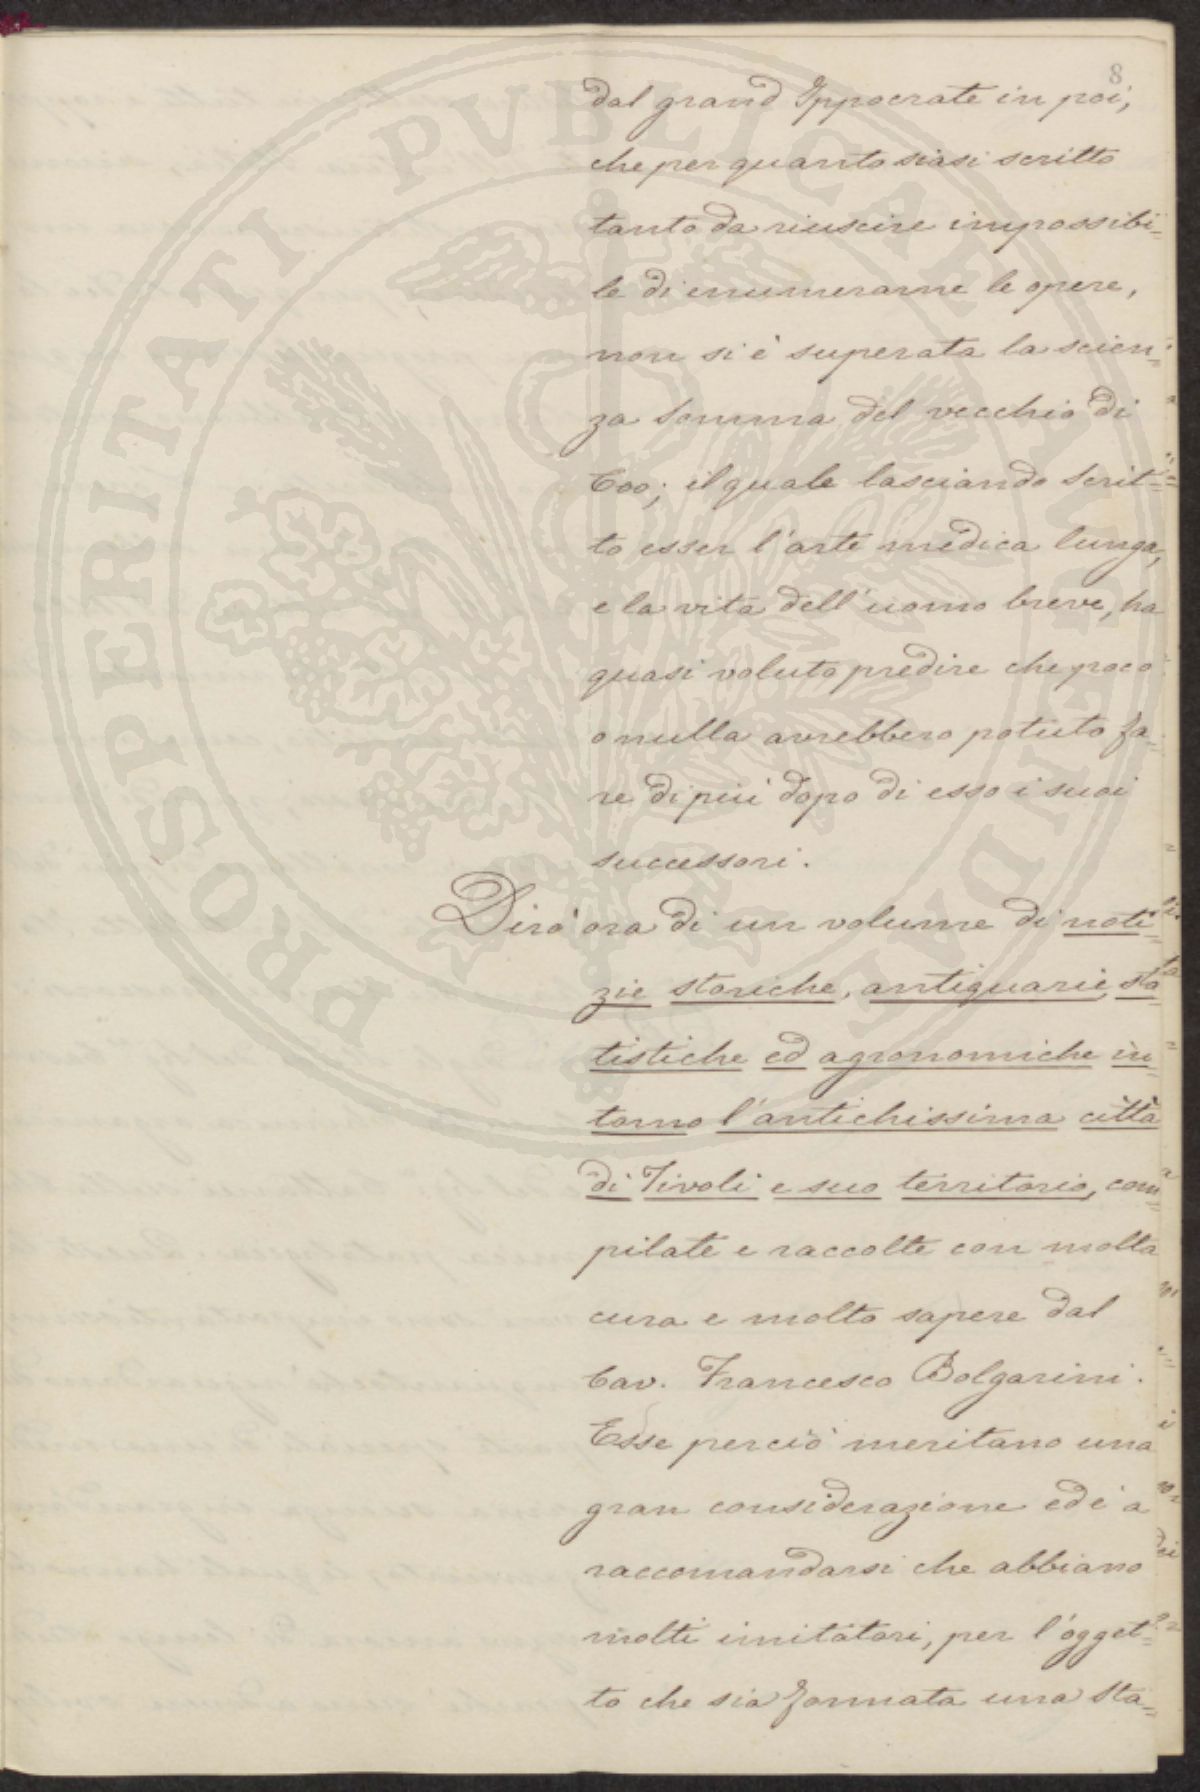 8
dal grand Ippocrate in poi,
che per quanto siasi scritto
tanto da riuscire impossibi=
le di enumerarne le opere,
non si è superata la scien=
za somma del vecchio di
Coo; il quale lasciando scrit=
to esser l'arte medica lunga,
e la vita dell'uomo breve, ha
quasi voluto predire che poco
o nulla avrebbero potuto fa=
re di più dopo di esso i suoi
successori.
Dirò ora di un volume di noti=
zie storiche, antiquarie, sta=
tistiche ed agronomiche in=
torno l'antichissima città
di Tivoli e suo territorio, com=
pilate e raccolte con molta
cura e molto sapere dal
Cav. Francesco Bolgarini.
Esse perciò meritano una
gran considerazione ed è a
raccomandarsi che abbiano
molti imitatori, per l'ogget=
to che sia formata una sta=
PROSPERITATI PVBLICAE AVGENDAE